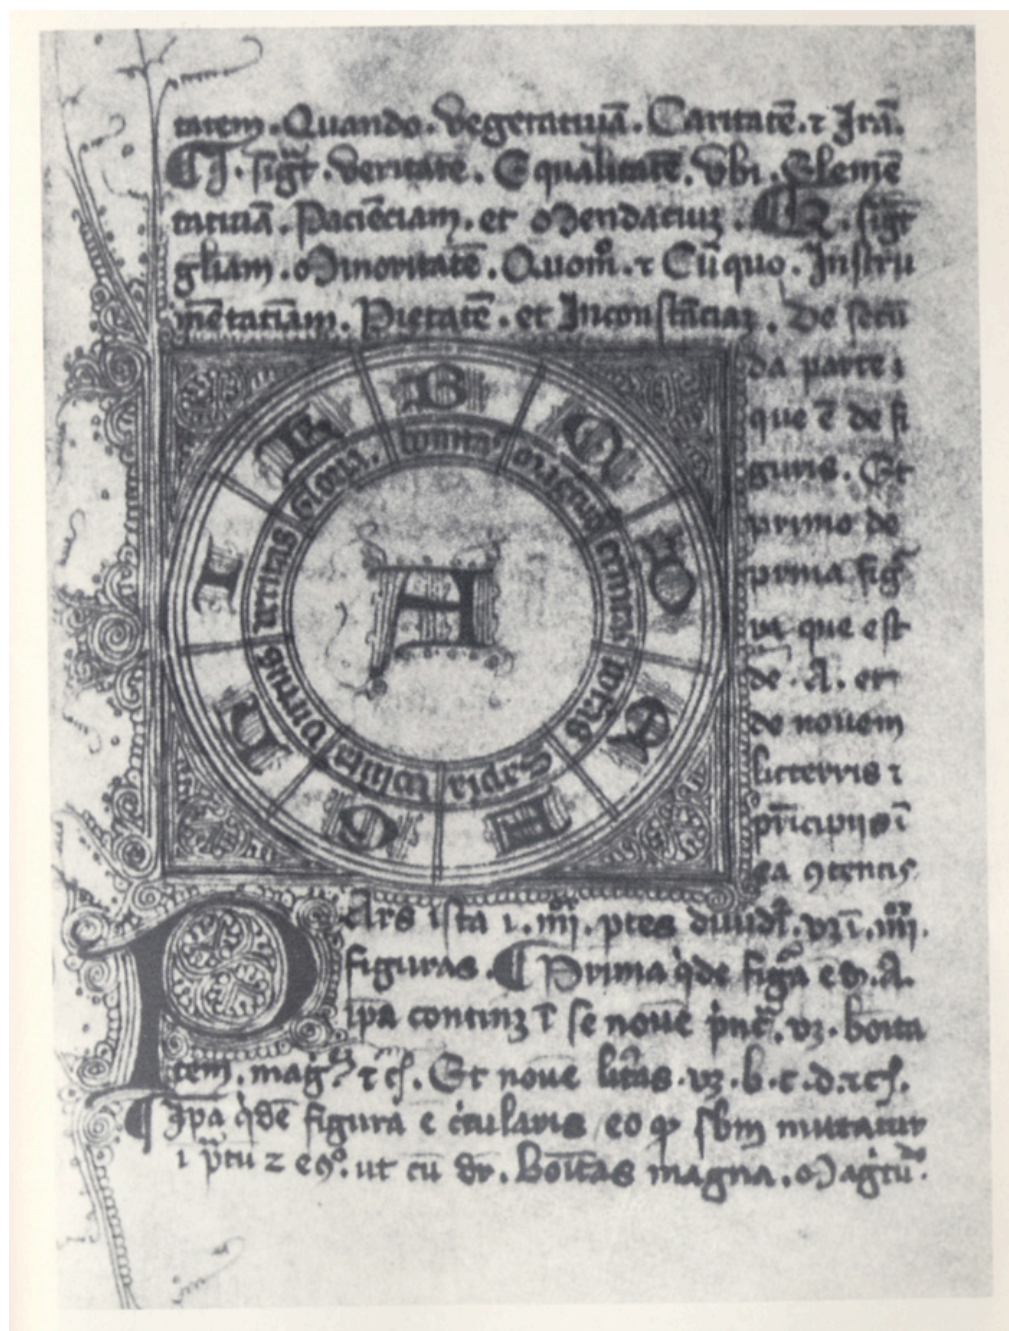 tatem. Quando. Vegetatiuā. Caritatē. ⁊ Irā.
¶ I. sigͭ. Veritatē. Equalitatē. Vbi. Elemē
tatiuā. Pacienciam. et Mendaciuꝫ. ¶ K. sigͭ
gliam. Minoritatē. Quomͦ. ⁊ Cū quo. Instru
mētatiuam. Pietatē. et Inconstāciaꝫ. De secū
da parte i
que ē de fi
guris. Et
primo de
prima figᷓ
ra que est
de. A. et
de nouem
litterris ⁊
pricipijs ī
ea ꝯtentis
B
C
D
E
F
G
H
I
K
bonitas
magnitudo
eternitas
potestas
Sapīa
volūtas
virtus
veritas
gloria.
A
Pars ista ī. iiij. ptes diuidiᷣ. vꝫ ī. iiij.
figuras. ¶ Prima qͥde figᷓa ē d. A.
ipa continꝫ ī se nouē pͥnᷓc. vꝫ. boīta
tem. magͥ. ⁊ cꝭ. Et noue līras. vꝫ. b. c. d. ⁊cꝭ.
¶ Ipa qͥdē figura ē cͥcularis eo ꝙ sbm mutatur
i p̄tū ⁊ eꝯͦ. ut cū dr. Boītas magna. Magͥtuᵈᵒ.